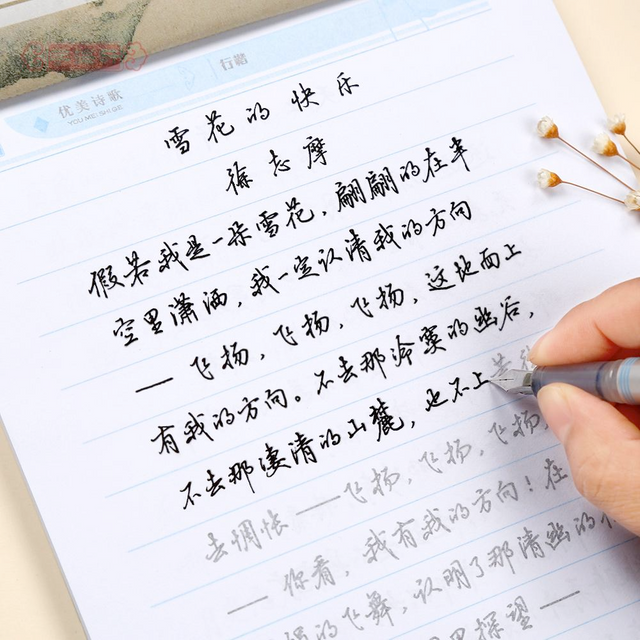 优美诗歌
YOU MEI SHI GE
行楷
雪花的快乐
徐志摩
假若我是一朵雪花，翩翩的在半
空里潇洒，我一定认清我的方向
——飞扬，飞扬，飞扬，这地面上
有我的方向。不去那冷寞的幽谷，
不去那凄清的山麓，也不上
去惆怅——飞扬，飞扬，飞扬
——你看，我有我的方向！在
的飞舞，认明了那清幽的
探望——